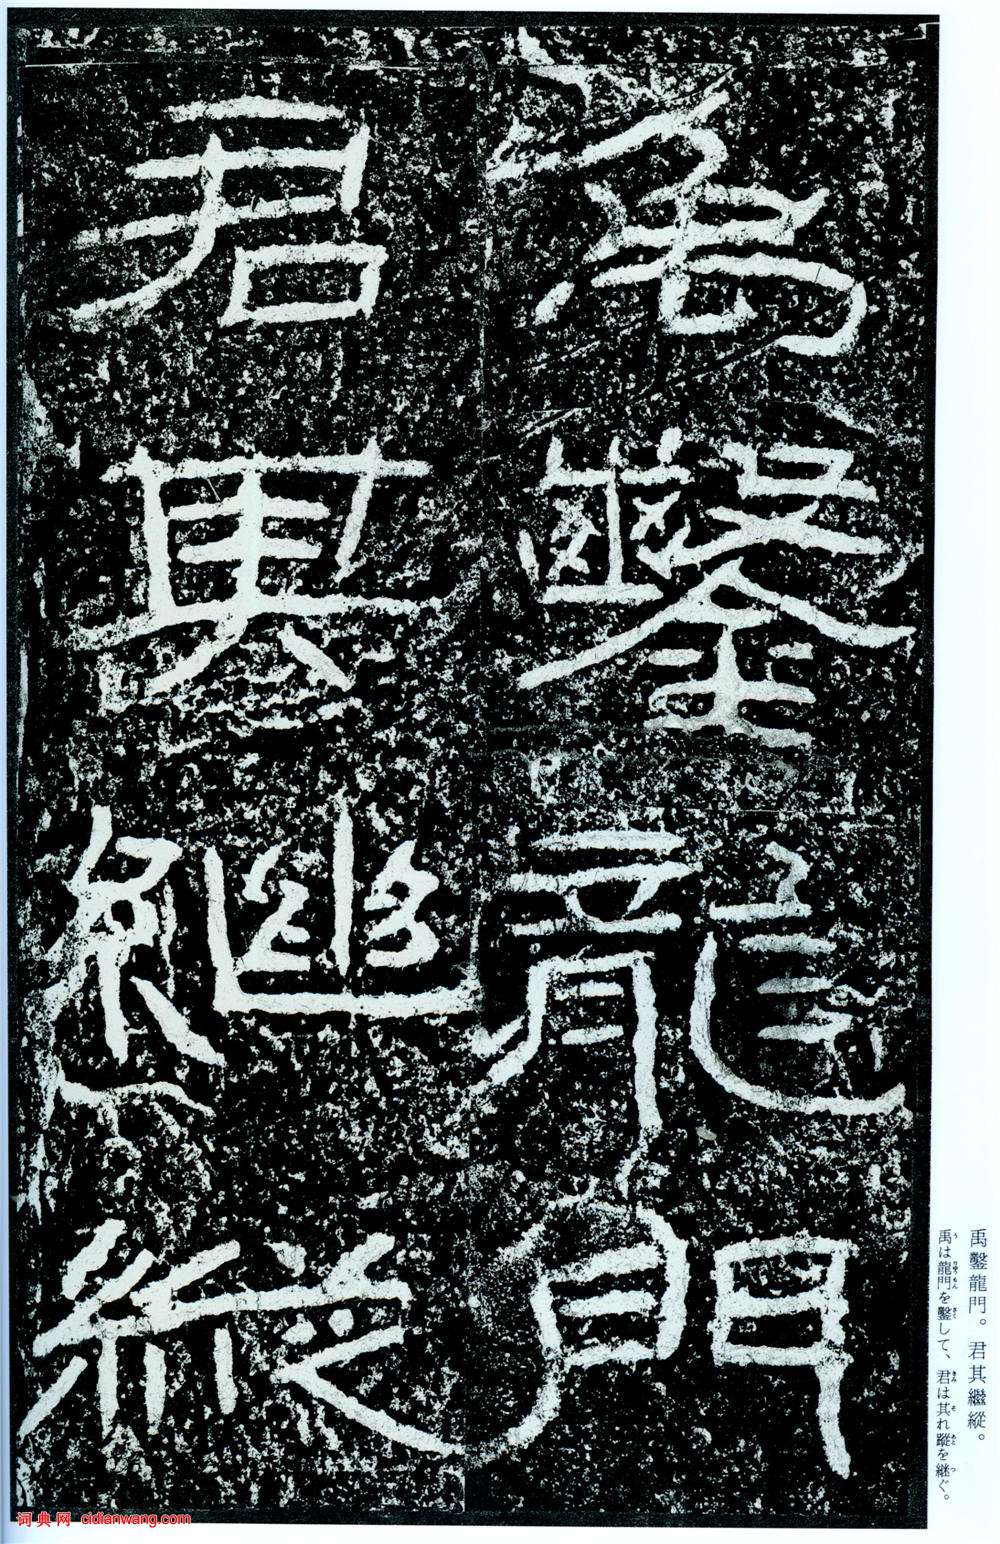 禹鑿龍門
君其繼縱
禹鑿龍門。君其繼縱。
禹は龍門を鑿して、君は其れ蹤を継ぐ。
词典网 cidianwang.com